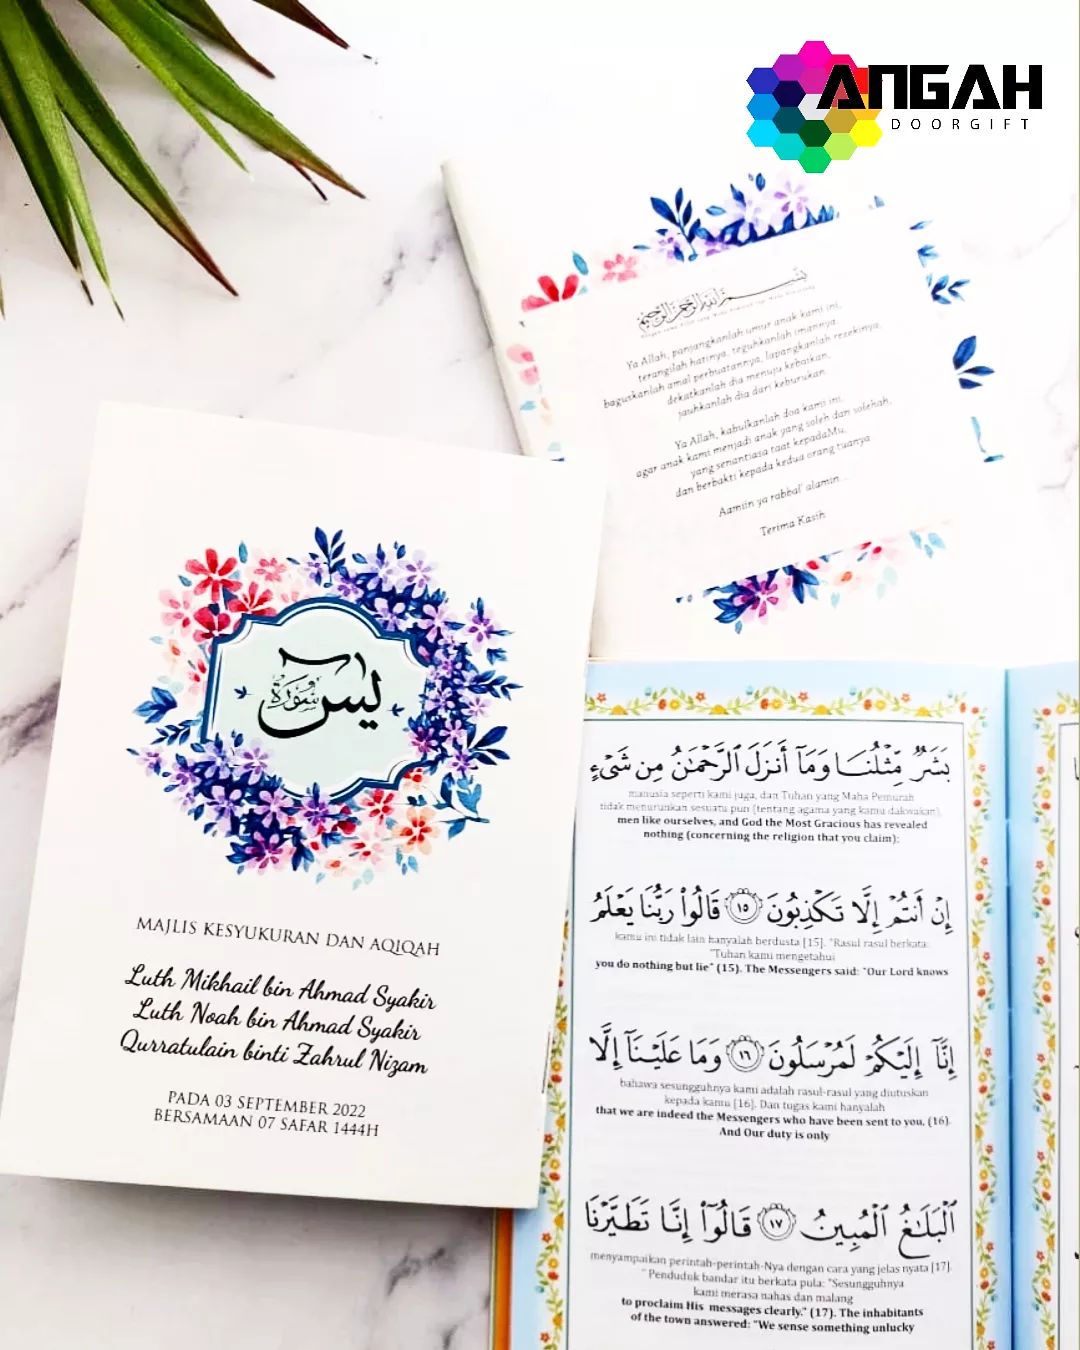 ANGAH
DOORGIFT
بسم الله الرحمن الرحيم
Ya Allah, panjangkanlah umur anak kami ini,
terangilah hatinya, teguhkanlah imannya,
baguskanlah amal perbuatannya, lapangkanlah rezekinya,
dekatkanlah dia menuju kebaikan,
jauhkanlah dia dari keburukan.
Ya Allah, kabulkanlah doa kami ini,
agar anak kami menjadi anak yang soleh dan solehah,
yang senantiasa taat kepadaMu,
dan berbakti kepada kedua orang tuanya
Aamiin ya rabbal' alamin...
Terima Kasih
سورة يس
MAJLIS KESYUKURAN DAN AQIQAH
Luth Mikhail bin Ahmad Syakir
Luth Noah bin Ahmad Syakir
Qurratulain binti Zahrul Nizam
PADA 03 SEPTEMBER 2022
BERSAMAAN 07 SAFAR 1444H
بَشَرٌ مِّثْلُنَا وَمَآ أَنزَلَ ٱلرَّحْمَٰنُ مِن شَىْءٍ
manusia seperti kami juga, dan Tuhan yang Maha Pemurah
tidak menurunkan sesuatu pun (tentang agama yang kamu dakwakan),
men like ourselves, and God the Most Gracious has revealed
nothing (concerning the religion that you claim):
إِنْ أَنتُمْ إِلَّا تَكْذِبُونَ ١٥ قَالُوا۟ رَبُّنَا يَعْلَمُ
kamu ini tidak lain hanyalah berdusta [15]. "Rasul rasul berkata:
"Tuhan kami mengetahui
you do nothing but lie" (15). The Messengers said: "Our Lord knows
إِنَّآ إِلَيْكُمْ لَمُرْسَلُونَ ١٦ وَمَا عَلَيْنَآ إِلَّا
bahawa sesungguhnya kami adalah rasul-rasul yang diutuskan
kepada kamu [16]. Dan tugas kami hanyalah
that we are indeed the Messengers who have been sent to you, (16).
And Our duty is only
ٱلْبَلَٰغُ ٱلْمُبِينُ ١٧ قَالُوٓا۟ إِنَّا تَطَيَّرْنَا
menyampaikan perintah-perintah-Nya dengan cara yang jelas nyata [17].
" Penduduk bandar itu berkata pula: "Sesungguhnya
kami merasa nahas dan malang
to proclaim His messages clearly." (17). The inhabitants
of the town answered: "We sense something unlucky